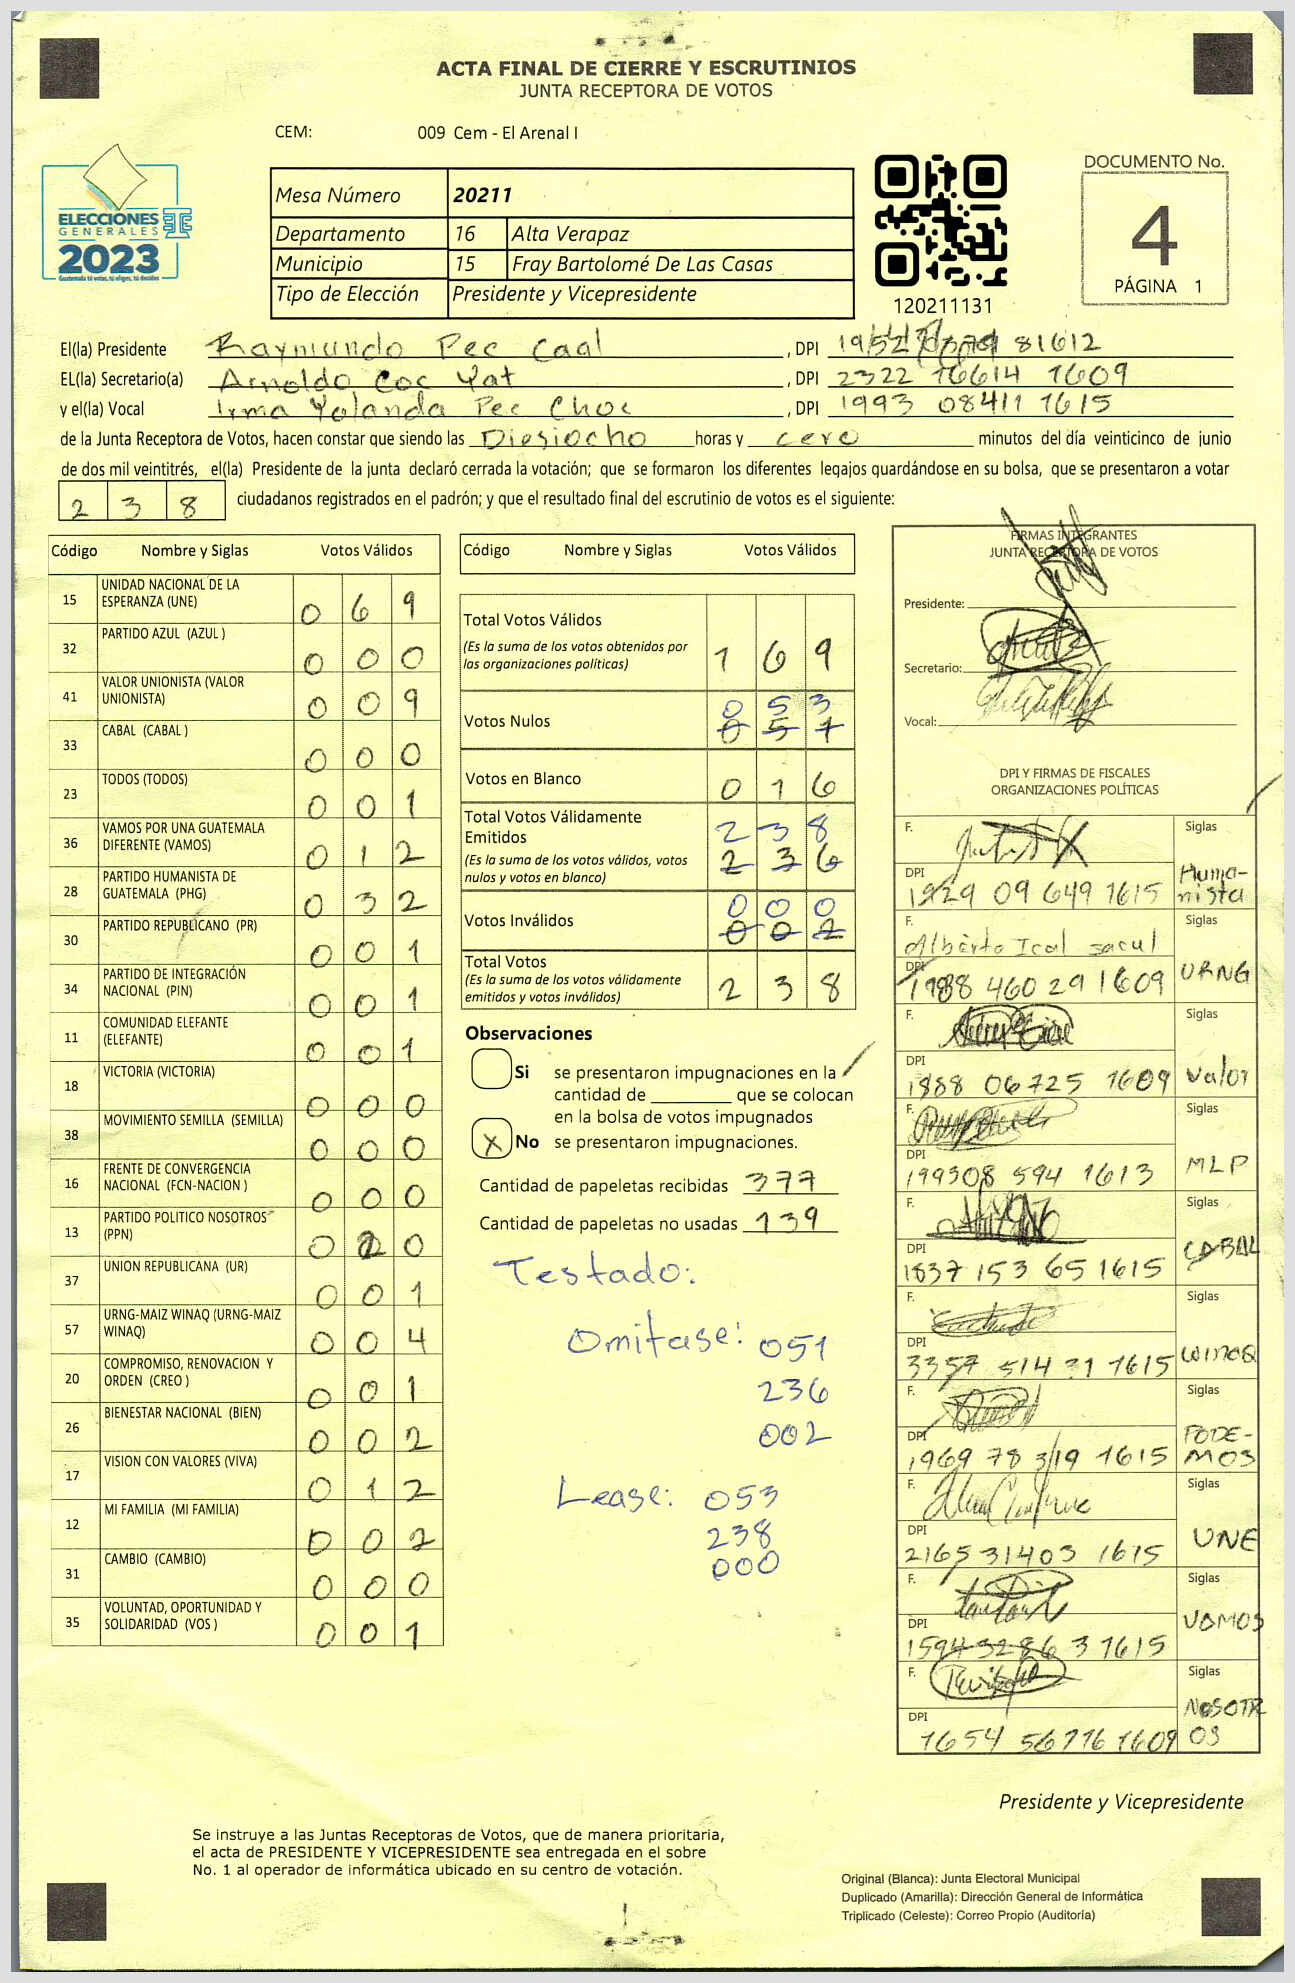 ACTA FINAL DE CIERRE Y ESCRUTINIOS
JUNTA RECEPTORA DE VOTOS
CEM: 009 Cem - El Arenal I
ELECCIONES
GENERALES
2023
Guatemala tú votas, tú eliges, tú decides
Mesa Número 20211
Departamento 16 Alta Verapaz
Municipio 15 Fray Bartolomé De Las Casas
Tipo de Elección Presidente y Vicepresidente
120211131
DOCUMENTO No.
4
PÁGINA 1
El(la) Presidente Raymundo Pec Caal , DPI 81612
EL(la) Secretario(a) Arnoldo Coc Yat , DPI 2322 16614 1609
y el(la) Vocal Irma Yolanda Pec Choc , DPI 1993 08411 1615
de la Junta Receptora de Votos, hacen constar que siendo las Diesiocho horas y cero minutos del día veinticinco de junio
de dos mil veintitrés, el(la) Presidente de la junta declaró cerrada la votación; que se formaron los diferentes legajos guardándose en su bolsa, que se presentaron a votar
2 3 8 ciudadanos registrados en el padrón; y que el resultado final del escrutinio de votos es el siguiente:
Código Nombre y Siglas Votos Válidos
15 UNIDAD NACIONAL DE LA
ESPERANZA (UNE) 0 6 9
32 PARTIDO AZUL (AZUL ) 0 0 0
41 VALOR UNIONISTA (VALOR
UNIONISTA) 0 0 9
33 CABAL (CABAL ) 0 0 0
23 TODOS (TODOS) 0 0 1
36 VAMOS POR UNA GUATEMALA
DIFERENTE (VAMOS) 0 1 2
28 PARTIDO HUMANISTA DE
GUATEMALA (PHG) 0 3 2
30 PARTIDO REPUBLICANO (PR) 0 0 1
34 PARTIDO DE INTEGRACIÓN
NACIONAL (PIN) 0 0 1
11 COMUNIDAD ELEFANTE
(ELEFANTE) 0 0 1
18 VICTORIA (VICTORIA) 0 0 0
38 MOVIMIENTO SEMILLA (SEMILLA) 0 0 0
16 FRENTE DE CONVERGENCIA
NACIONAL (FCN-NACION ) 0 0 0
13 PARTIDO POLITICO NOSOTROS
(PPN) 0 2 0
37 UNION REPUBLICANA (UR) 0 0 1
57 URNG-MAIZ WINAQ (URNG-MAIZ
WINAQ) 0 0 4
20 COMPROMISO, RENOVACION Y
ORDEN (CREO ) 0 0 1
26 BIENESTAR NACIONAL (BIEN) 0 0 2
17 VISION CON VALORES (VIVA) 0 1 2
12 MI FAMILIA (MI FAMILIA) 0 0 2
31 CAMBIO (CAMBIO) 0 0 0
35 VOLUNTAD, OPORTUNIDAD Y
SOLIDARIDAD (VOS ) 0 0 1
Código Nombre y Siglas Votos Válidos
Total Votos Válidos
(Es la suma de los votos obtenidos por
las organizaciones políticas) 1 6 9
0 5 3
Votos Nulos 0 5 1
Votos en Blanco 0 1 6
Total Votos Válidamente
Emitidos 2 3 8
(Es la suma de los votos válidos, votos
nulos y votos en blanco) 2 3 6
0 0 0
Votos Inválidos 0 0 2
Total Votos
(Es la suma de los votos válidamente
emitidos y votos inválidos) 2 3 8
Observaciones
Si se presentaron impugnaciones en la
cantidad de ________ que se colocan
en la bolsa de votos impugnados
X No se presentaron impugnaciones.
Cantidad de papeletas recibidas 377
Cantidad de papeletas no usadas 139
Testado:
Omitase: 051
236
002
Lease: 053
238
000
FIRMAS INTEGRANTES
JUNTA RECEPTORA DE VOTOS
Presidente:
Secretario:
Vocal:
DPI Y FIRMAS DE FISCALES
ORGANIZACIONES POLÍTICAS
F. Siglas
DPI 1929 09 649 1615 Humanista
F. Alberto Ical sacul Siglas
DPI 1988 460 29 1609 URNG
F. Siglas
DPI 1888 06725 1609 Valor
F. Siglas
DPI 199308 594 1613 MLP
F. Siglas
DPI 1837 153 65 1615 CABAL
F. Siglas
DPI 3357 514 31 1615 WINAQ
F. Siglas
DPI 1969 78 319 1615 PODE-
MOS
F. Siglas
DPI 2165 31403 1615 UNE
F. Siglas
DPI 1594 3286 3 1615 VAMOS
F. Siglas
DPI 1654 56716 1609 NOSOTR
OS
Presidente y Vicepresidente
Se instruye a las Juntas Receptoras de Votos, que de manera prioritaria,
el acta de PRESIDENTE Y VICEPRESIDENTE sea entregada en el sobre
No. 1 al operador de informática ubicado en su centro de votación.
Original (Blanca): Junta Electoral Municipal
Duplicado (Amarilla): Dirección General de Informática
Triplicado (Celeste): Correo Propio (Auditoría)